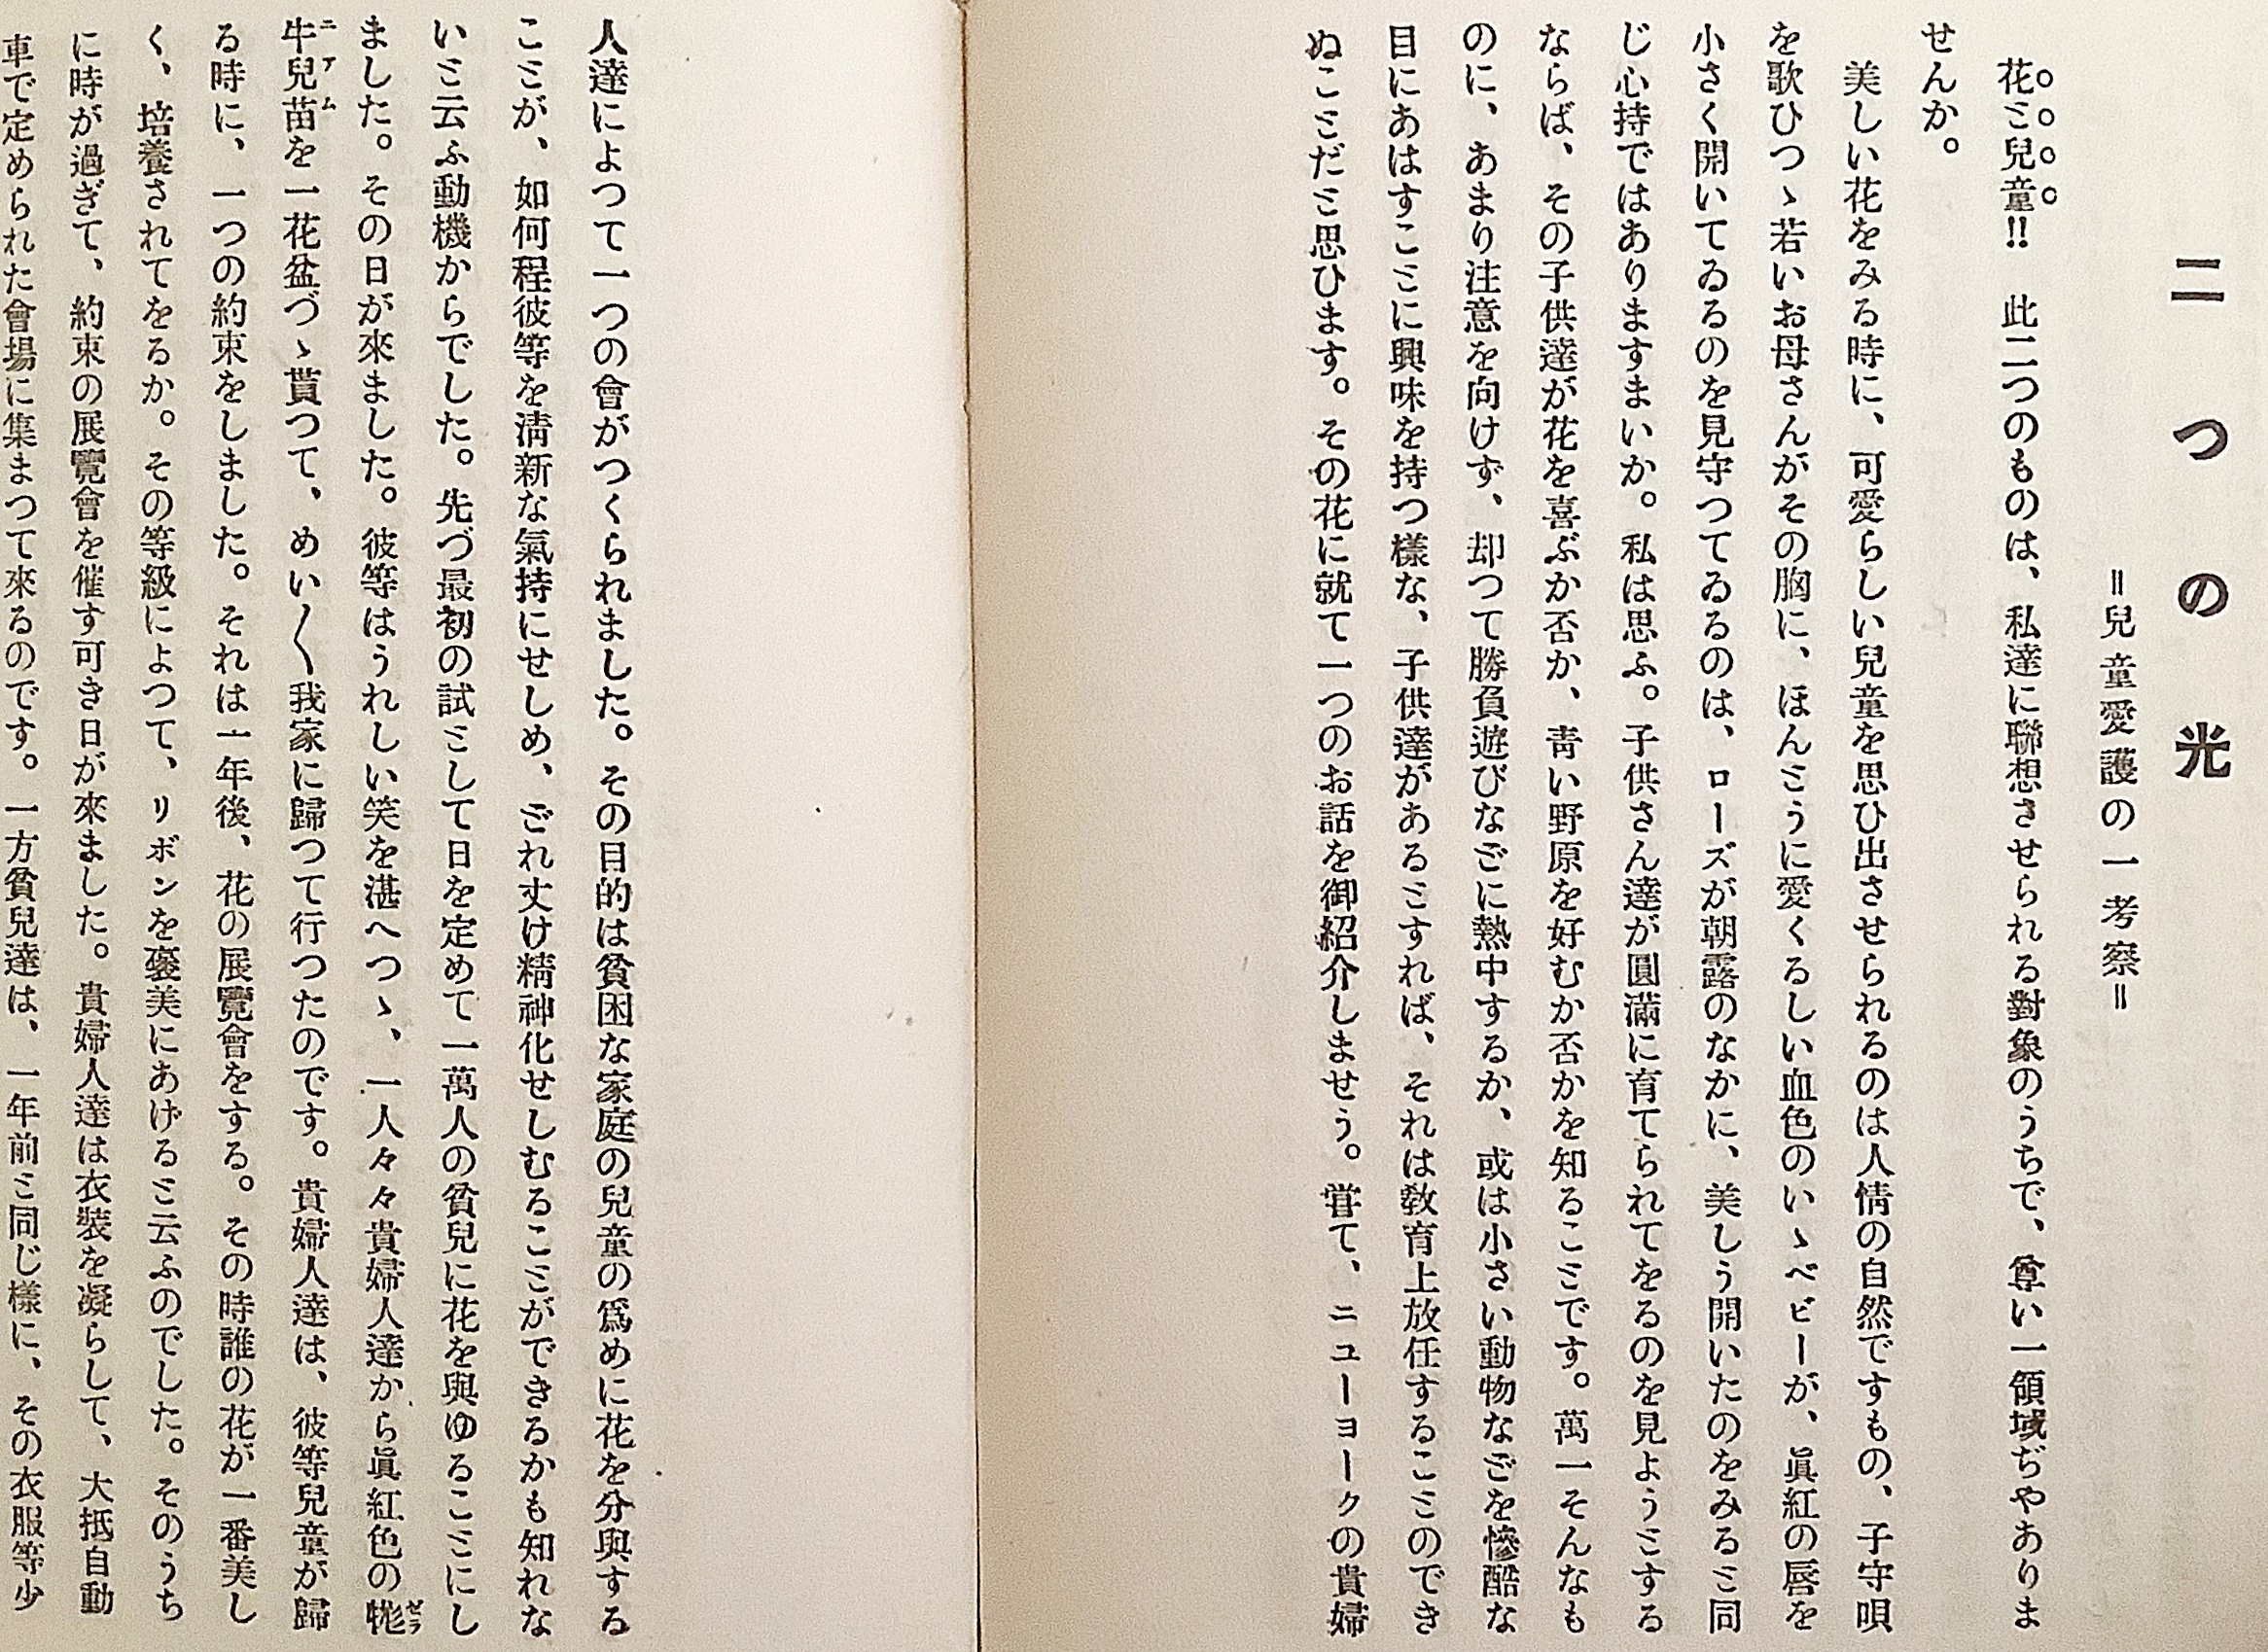 二つの光
＝兒童愛護の一考察＝
花ミ兒童!!　此二つのものは、私達に聯想させられる對象のうちで、尊い一領域ぢやありま
せんか。
美しい花をみる時に、可愛らしい兒童を思ひ出させられるのは人情の自然ですもの、子守唄
を歌ひつゝ若いお母さんがその胸に、ほんミうに愛くるしい血色のいゝベビーが、眞紅の唇を
小さく開いてゐるのを見守つてゐるのは、ローズが朝露のなかに、美しう開いたのをみるミ同
じ心持ではありますまいか。私は思ふ。子供さん達が圓滿に育てられてをるのを見ようミする
ならば、その子供達が花を喜ぶか否か、靑い野原を好むか否かを知るこミです。萬一そんなも
のに、あまり注意を向けず、却つて勝負遊びなごに熱中するか、或は小さい動物なごを慘酷な
目にあはすこミに興味を持つ樣な、子供達があるミすれば、それは敎育上放任するこミのでき
ぬこミだミ思ひます。その花に就て一つのお話を御紹介しませう。甞て、ニューヨークの貴婦
人達によつて一つの會がつくられました。その目的は貧困な家庭の兒童の爲めに花を分與する
こミが、如何程彼等を淸新な氣持にせしめ、ごれ丈け精神化せしむるこミができるかも知れな
いミ云ふ動機からでした。先づ最初の試ミして日を定めて一萬人の貧兒に花を與ゆるこミにし
ました。その日が來ました。彼等はうれしい笑を湛へつゝ、一人々々貴婦人達から眞紅色の牻ゼラ
牛兒苗ニアムを一花盆づゝ貰つて、めい〱我家に歸つて行つたのです。貴婦人達は、彼等兒童が歸
る時に、一つの約束をしました。それは一年後、花の展覽會をする。その時誰の花が一番美し
く、培養されてをるか。その等級によつて、リボンを褒美にあげるミ云ふのでした。そのうち
に時が過ぎて、約束の展覽會を催す可き日が來ました。貴婦人達は衣裝を凝らして、大抵自動
車で定められた會場に集まつて來るのです。一方貧兒達は、一年前ミ同じ樣に、その衣服等少